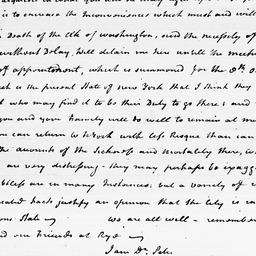 is to increase the Inconveniences which must and will
Death of the Clk of Washington, and the necessity of
without Delay, will detain me here untill the meeting
of appointment, which is summoned for the 8th
is the present State of New York that I think they
who may find it to be their Duty to go there; and
you and your family will do well to remain at
can return to Work with less Risque than can
the accounts of the Sickness and Mortality there,
are very distressing – they may perhaps be exagge
less are in many Instances, but a variety of
facts justify an opinion that the City is
ous State – we are all well – remember
our Friends at Rye
I am Dr. Peter